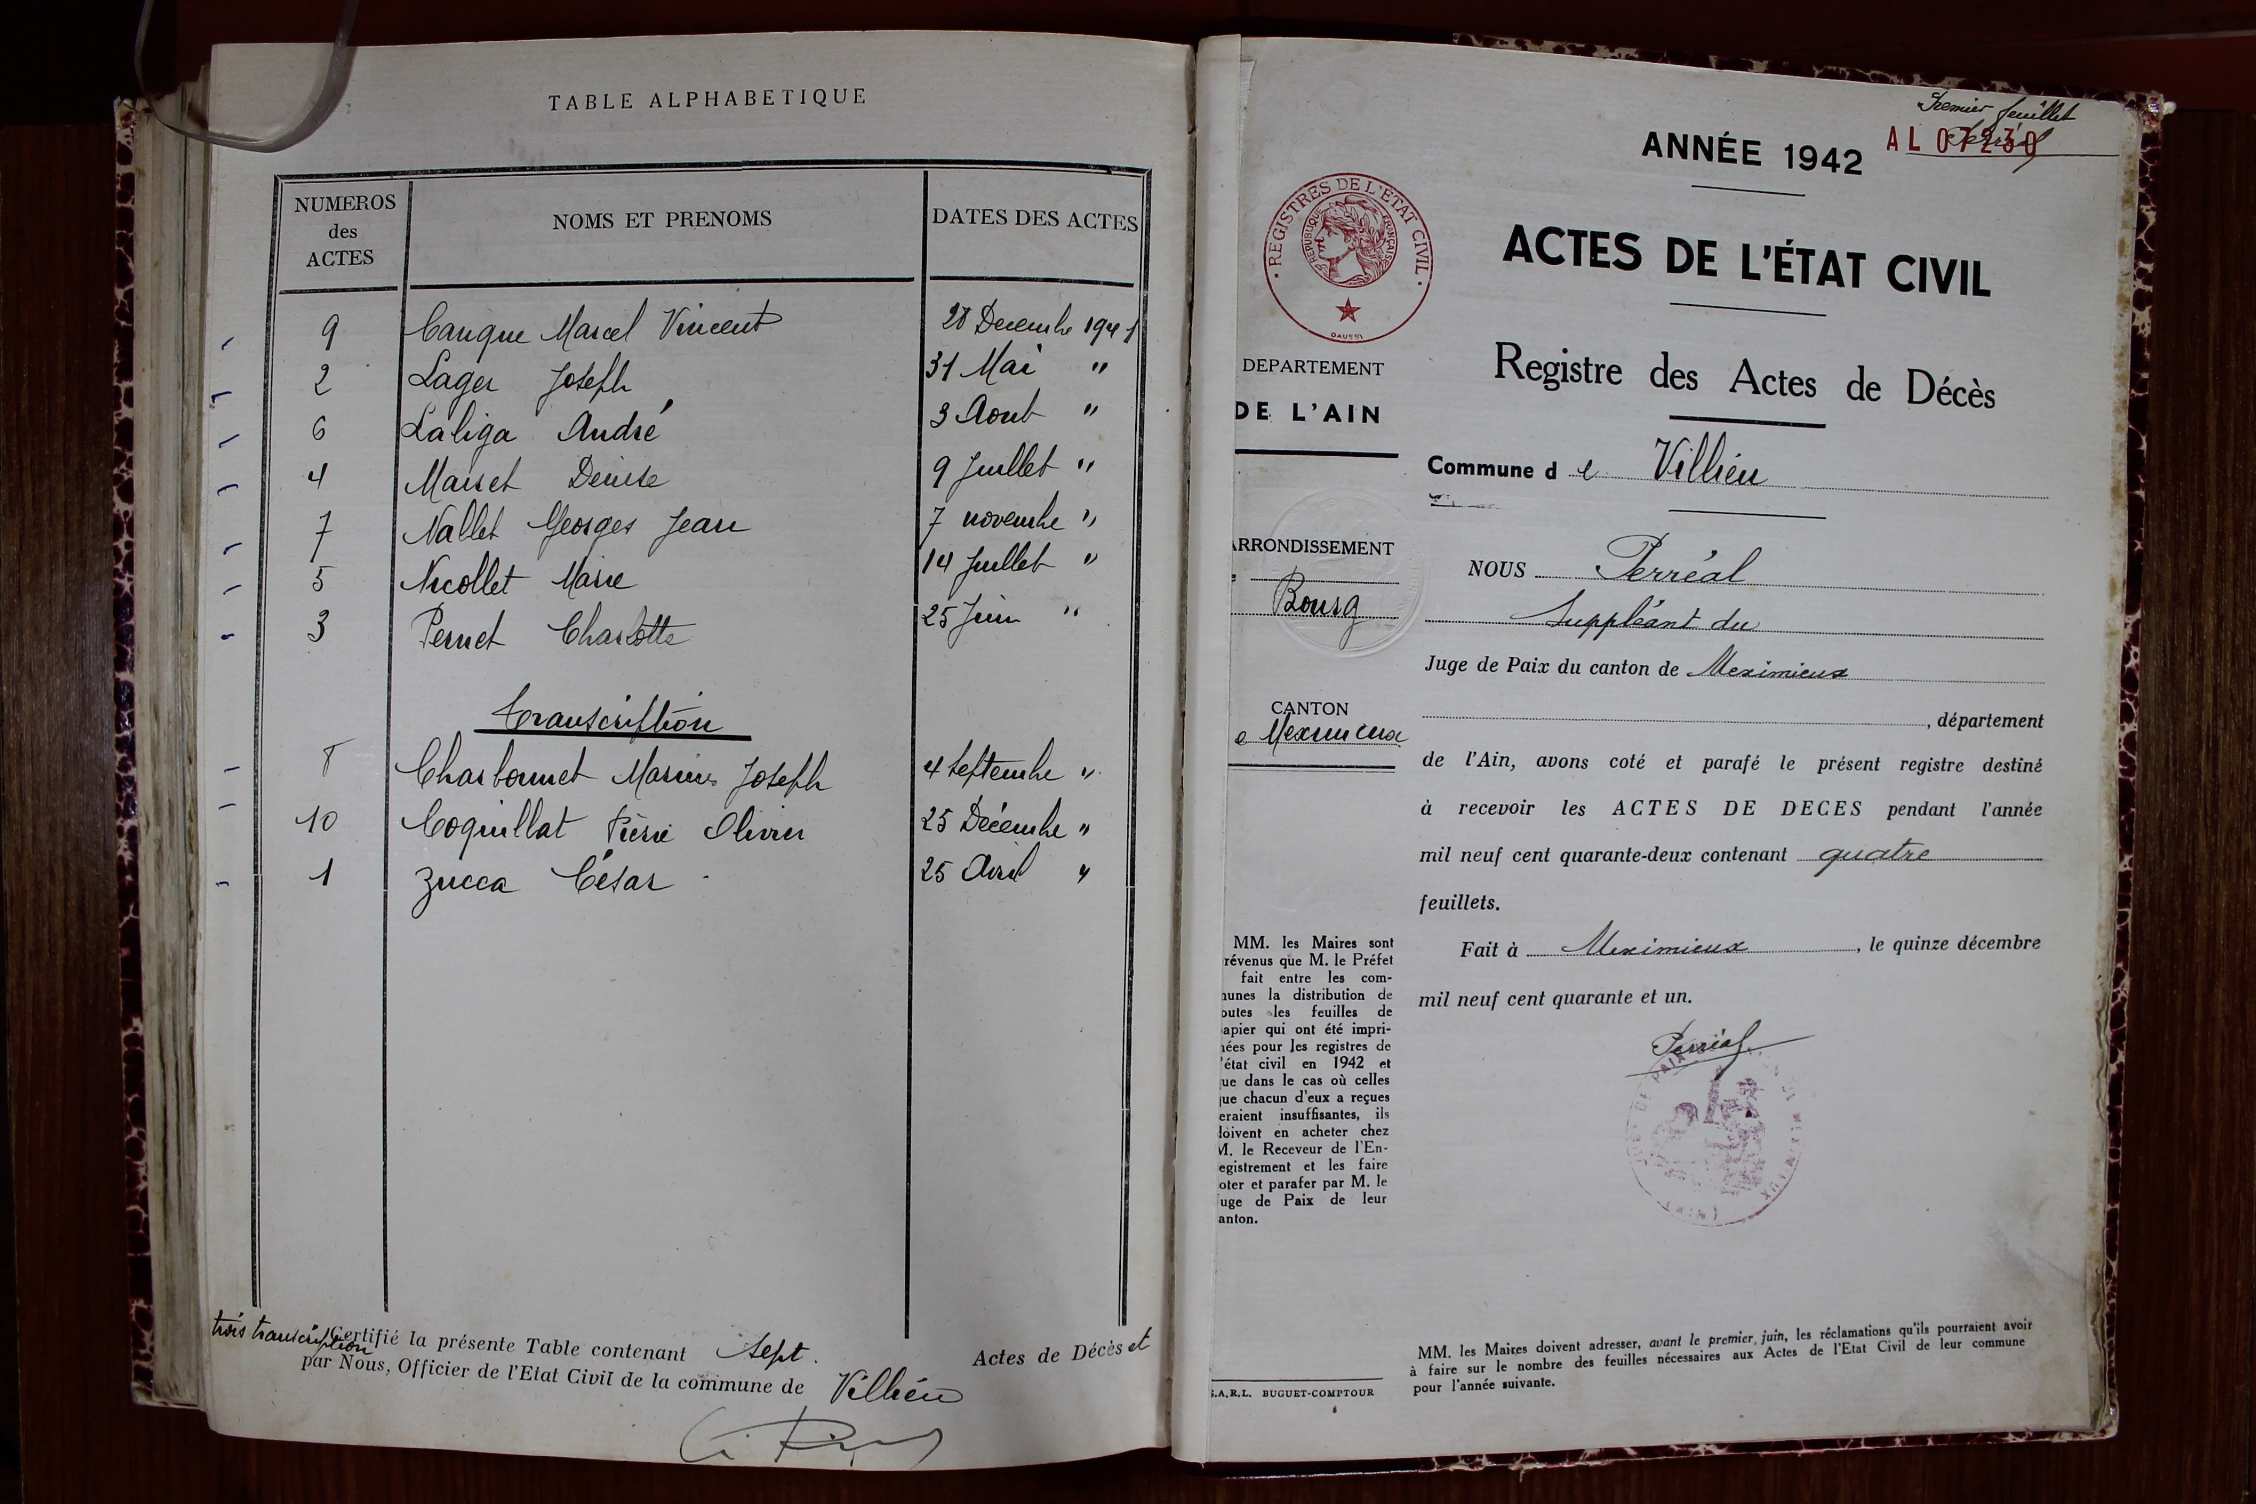 TABLE ALPHABETIQUE
NUMEROS des ACTES
NOMS ET PRENOMS
DATES DES ACTES
9 Canque Marcel Vincent 28 Decembre 1941
2 Lager Joseph 31 Mai "
6 Laliga André 3 Aout "
4 Maiset Denise 9 Juillet "
7 Nallet Georges Jean 7 novembre "
5 Nicollet Marie 14 Juillet "
3 Pernet Charlotte 25 Juin "
Transcription
8 Charbonnet Marius Joseph 4 Septembre "
10 Coquillat Pierre Olivier 25 Décembre "
1 Zucca César 25 Avril "
Certifié la présente Table contenant Sept. Actes de Décès et
trois transcription
par Nous, Officier de l'Etat Civil de la commune de Villieu
Premier feuillet
AL 07230
ANNÉE 1942
REGISTRES DE L'ÉTAT CIVIL
RÉPUBLIQUE FRANÇAISE
DAUSSI
ACTES DE L'ÉTAT CIVIL
Registre des Actes de Décès
DEPARTEMENT
DE L'AIN
Commune de Villieu
ARRONDISSEMENT
Bourg
CANTON
e Meximieux
NOUS Perréal
Suppléant du
Juge de Paix du canton de Meximieux
, département
de l'Ain, avons coté et parafé le présent registre destiné
à recevoir les ACTES DE DECES pendant l'année
mil neuf cent quarante-deux contenant quatre
feuillets.
Fait à Meximieux, le quinze décembre
mil neuf cent quarante et un.
Perréal
MM. les Maires sont
révenus que M. le Préfet
fait entre les com-
unes la distribution de
outes les feuilles de
apier qui ont été impri-
ées pour les registres de
'état civil en 1942 et
ue dans le cas où celles
ue chacun d'eux a reçues
eraient insuffisantes, ils
doivent en acheter chez
M. le Receveur de l'En-
egistrement et les faire
oter et parafer par M. le
uge de Paix de leur
anton.
S.A.R.L. BUGUET-COMPTOUR
MM. les Maires doivent adresser, avant le premier juin, les réclamations qu'ils pourraient avoir
à faire sur le nombre des feuilles nécessaires aux Actes de l'Etat Civil de leur commune
pour l'année suivante.